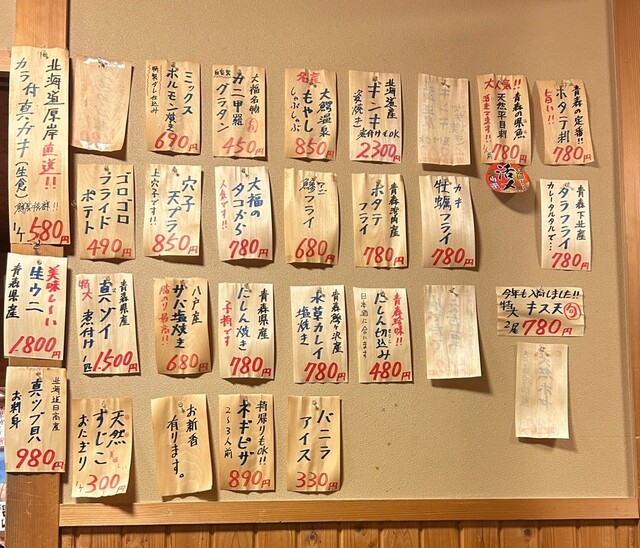 青森の定番!!
旨い!!
ホタテ刺
780円
大人気!!
青森の県魚
天然平目刺
780円
活〆
北海道産
キンキ
煮付けもOK
2300円
名産
大鰐温泉
もやし
しゃぶしゃぶ
850円
大福名物
旬
自家製
カニ甲羅
グラタン
450円
ミックス
ホルモン焼き
690円
北海道厚岸直送!!
カラ付真ガキ
(生食)
1ケ580円
青森下北産
タラフライ
カレータルタルで…
780円
カキ
牡蠣フライ
780円
青森湾内産
ホタテ
フライ
780円
フライ
680円
大福の
タコから
人気です!!
780円
穴子
天プラ
上穴子です!!
850円
ゴロゴロ
フライド
ポテト
490円
今年も入荷しました!!
特大 キス天 旬
2尾 780円
青森珍味!!
にしん切込み
日本酒に合います
480円
青森鰺ヶ沢産
水草カレイ
塩焼き
780円
青森県産
にしん焼き
子持です
780円
八戸産
サバ塩焼き
脂のり最高!!
680円
青森県産
真ゾイ
煮付け
特大
1匹1500円
美味しーい
生ウニ
青森県産
1800円
バニラ
アイス
330円
持帰りもOK!!
ネギピザ
2〜3人前
890円
お新香
有ります。
天然
すじこ
おにぎり
1ケ300円
北海道日高産
真ツブ貝
お刺身
980円